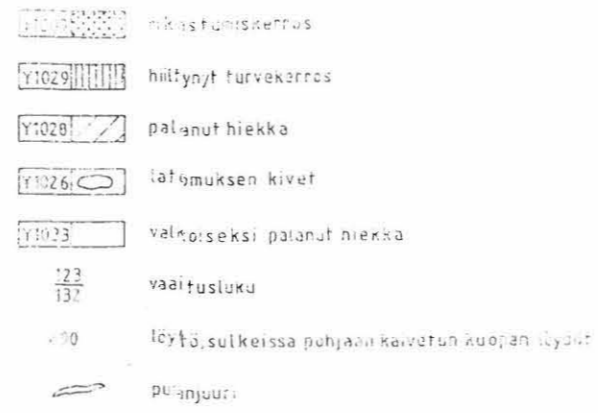 rikastumiskerros
Y1029 hiiltynyt turvekerros
Y1028 palanut hiekka
Y1026 latomuksen kivet
Y1023 valkoiseksi palanut hiekka
123
132 vaaitusluku
löytö, sulkeissa pohjaan kaivetun kuopan löydöt
puunjuuri